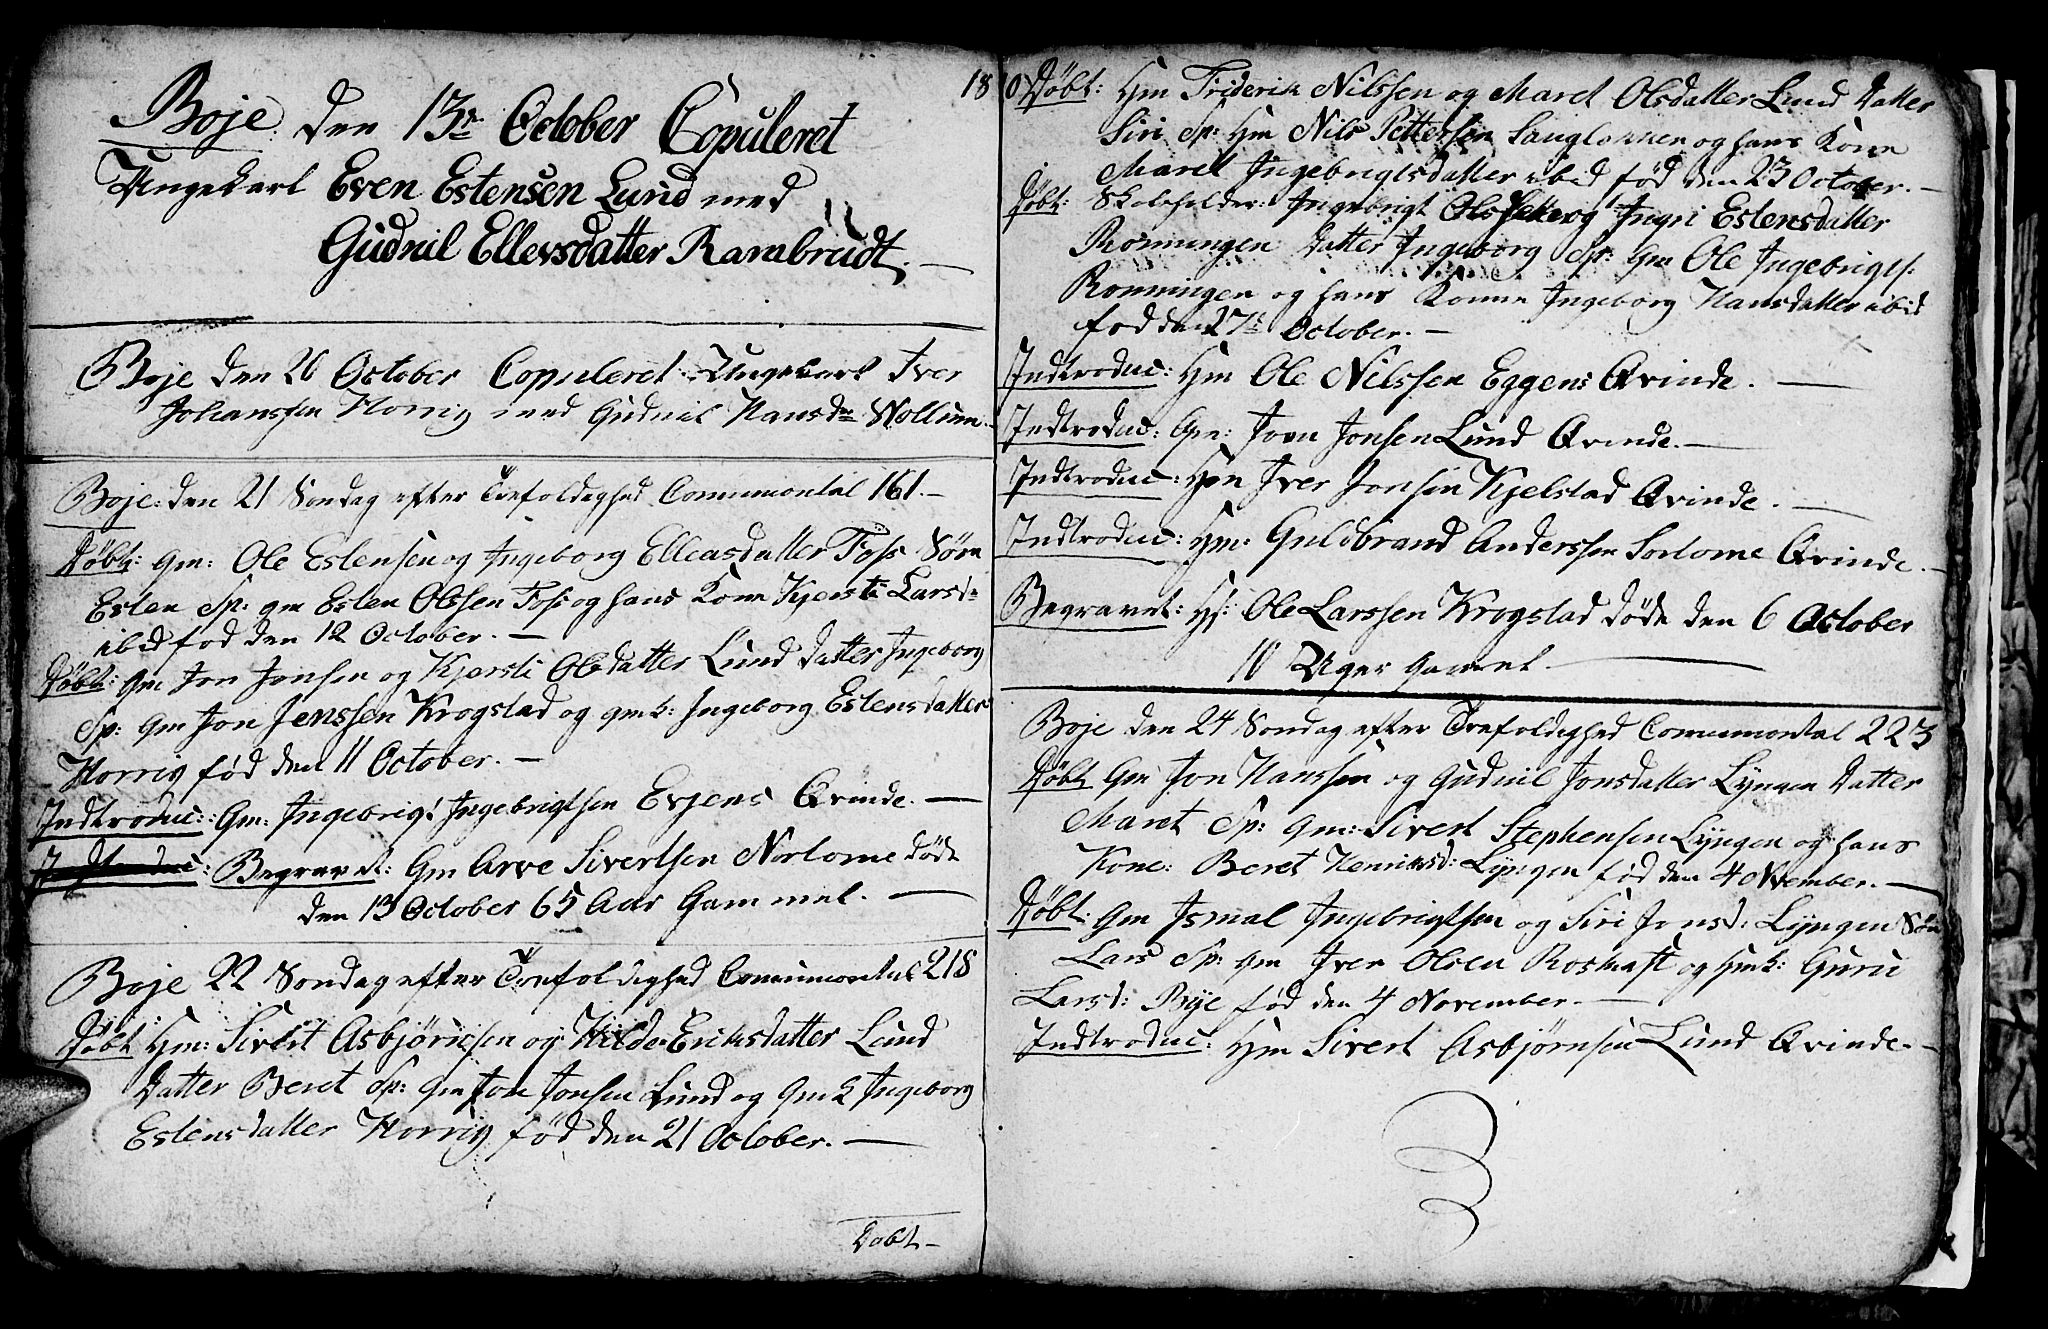 Boje: den 13de October Copuleret
Ungekarl Even Estensen Lund med
Gudnil Ellevsdatter Rambredt.
Boje den 20 October Copuleret Ungekarl Iver
Johanssen Horrig med Gudnil Hansdr Wollum
Boje: den 21 Søndag efter Trefoldighed Communontal 161.
Døbt: Gm: Ole Estensen og Ingeborg Ellevsdatter Foss Søn
Esten Sp: gm Esten Olssen Foss og hans Kone Kjersti Larsdr
ibid fød den 12 October.
Døbt: Gm Jon Jonsen og Kjersti Olsdatter Lund datter Ingeborg
Sp: Gm Jon Jenssen Krogstad og gmk: Ingeborg Estensdatter
Horrig fød den 11 October.
Indtroduc: Gm: Ingebrigt Ingebrigtsen Evjens Qvinde.
Begravet: Gm Arve Sivertsen Norlome døde
den 13 October 65 Aar Gammel.
Boje 22 Søndag efter Trefoldighed Communontal 218
Døbt Hm: Sivert Asbjørnsen og Hilde Eriksdatter Lund
datter Beret Sp: Gm Jon Jonsen Lund og Gmk Ingeborg
Estensdatter Horrig fød den 21 October.
Døbt
1810
Døbt: Hm Friderik Nilssen og Maret Olsdatter Lund datter
Siri Sp: Hm Nils Pettersen Langløkken og hans Kone
Maret Ingebrigtsdatter ibid fød den 23 October.
Døbt: Skoleholder: Ingebrigt og Ingri Estensdatter
Rønningen datter Ingeborg Sp: Gm Ole Ingebrigts:
Rønningen og hans Konne Ingeborg Hansdatter ibid
fød den 27de October.
Indtroduc: Hm Ole Nilssen Eggens Qvinde.
Indtroduc: Gm: Joen Jonsen Lund Qvinde.
Indtroduc: Hm Iver Jonsen Kjelstad Qvinde.
Indtroduc: Hm: Guldbrand Anderssen Sorlome Qvinde.
Begravet: Hs: Ole Larssen Krogstad døde den 6 October
10 Uger Gammel.
Boje den 24 Søndag efter Trefoldighed Communontal 223
Døbt Gm Jon Hanssen og Gudnil Jonsdatter Lyngen datter
Maret Sp: Gm: Sivert Stephensen Lyngen og hans
Kone: Beret Henriksd: Lyngen fød den 4 November.
Døbt: Gm Ismal Ingebrigtsen og Siri Jonsd: Lyngen Søn
Lars Sp: Gm Iver Olsen Roskaft og Hmk: Guru
Larsd: Bye fød den 4 November.
Indtroduc: Hm Sivert Asbjørnsen Lund Qvinde.